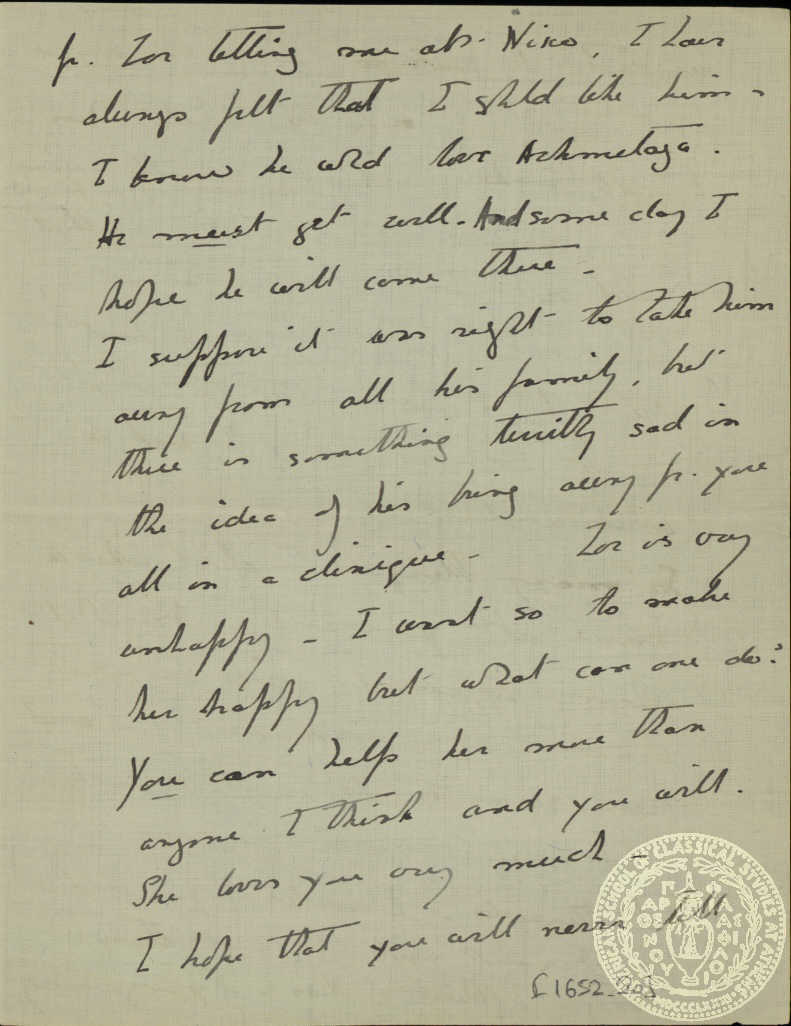 fr. Zoe telling me abt. Niko, I have
always felt that I shld like him -
I know he wld love Achmetaga.
He must get well. And some day I
hope he will come there -
I suppose it was right to take him
away from all his family, but
there is something terribly sad in
the idea of his being away fr. you
all in a clinique - Zoe is very
unhappy - I want so to make
her happy but what can one do?
You can help her more than
anyone I think and you will.
She loves you very much -
I hope that you will never tell
£1652_203
AMERICAN SCHOOL OF CLASSICAL STUDIES AT ATHENS
MDCCCLXXXI